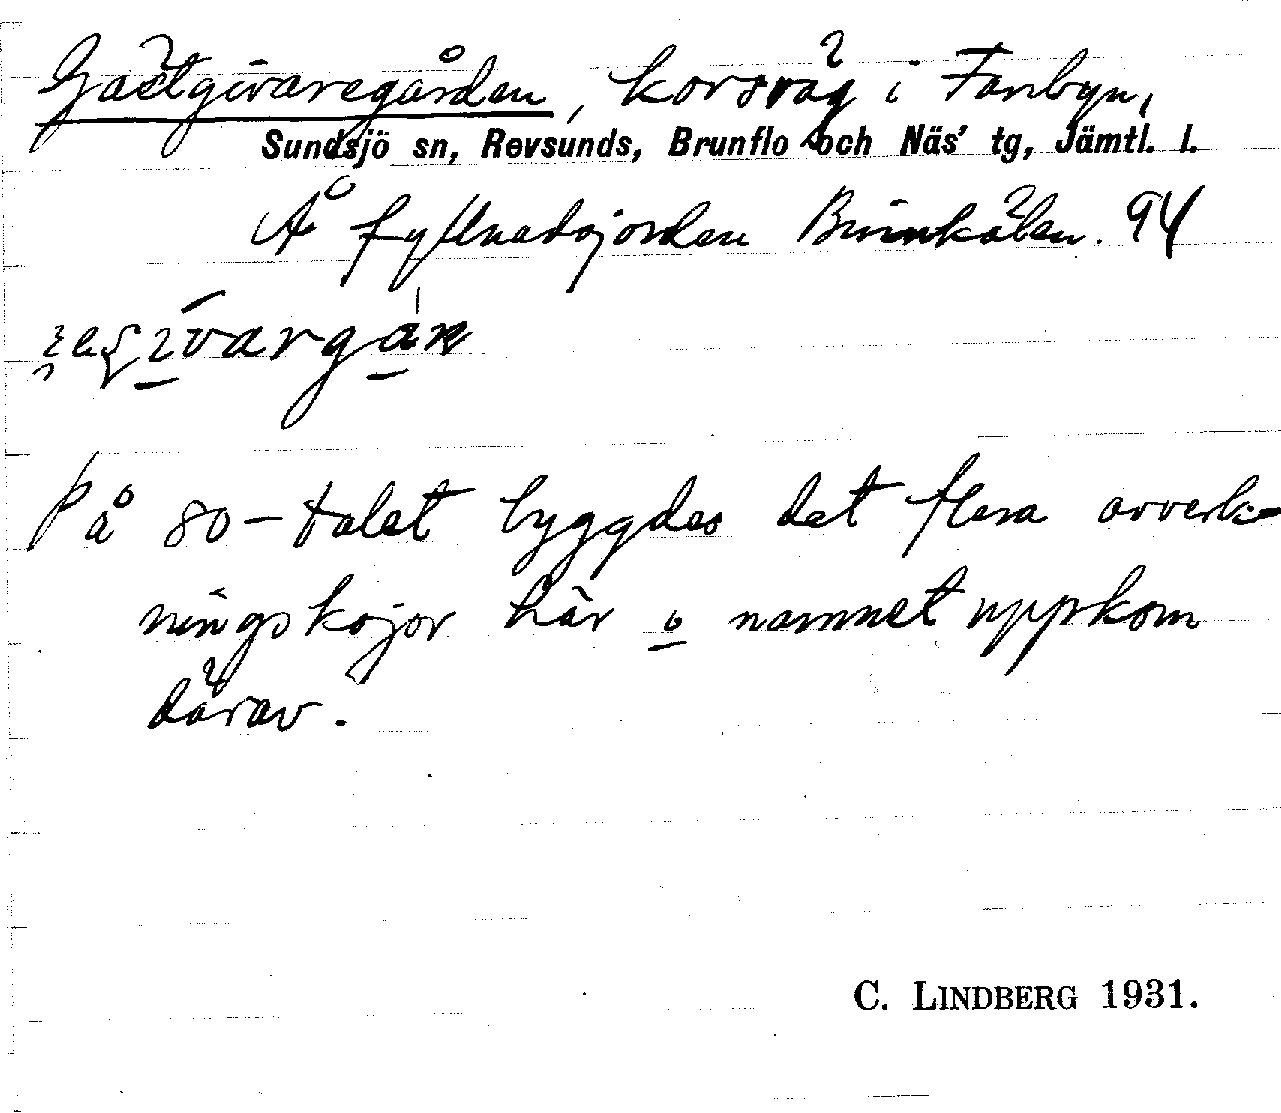 Gästgivaregården, korsväg i Fanbyn,
Sundsjö sn, Revsunds, Brunflo och Näs' tg, Jämtl. l.
Å fyllnadsjorden Binnkälen. 94
På 80-talet byggdes det flera avverk-
ningskojor här o namnet uppkom
därav.
C. LINDBERG 1931.